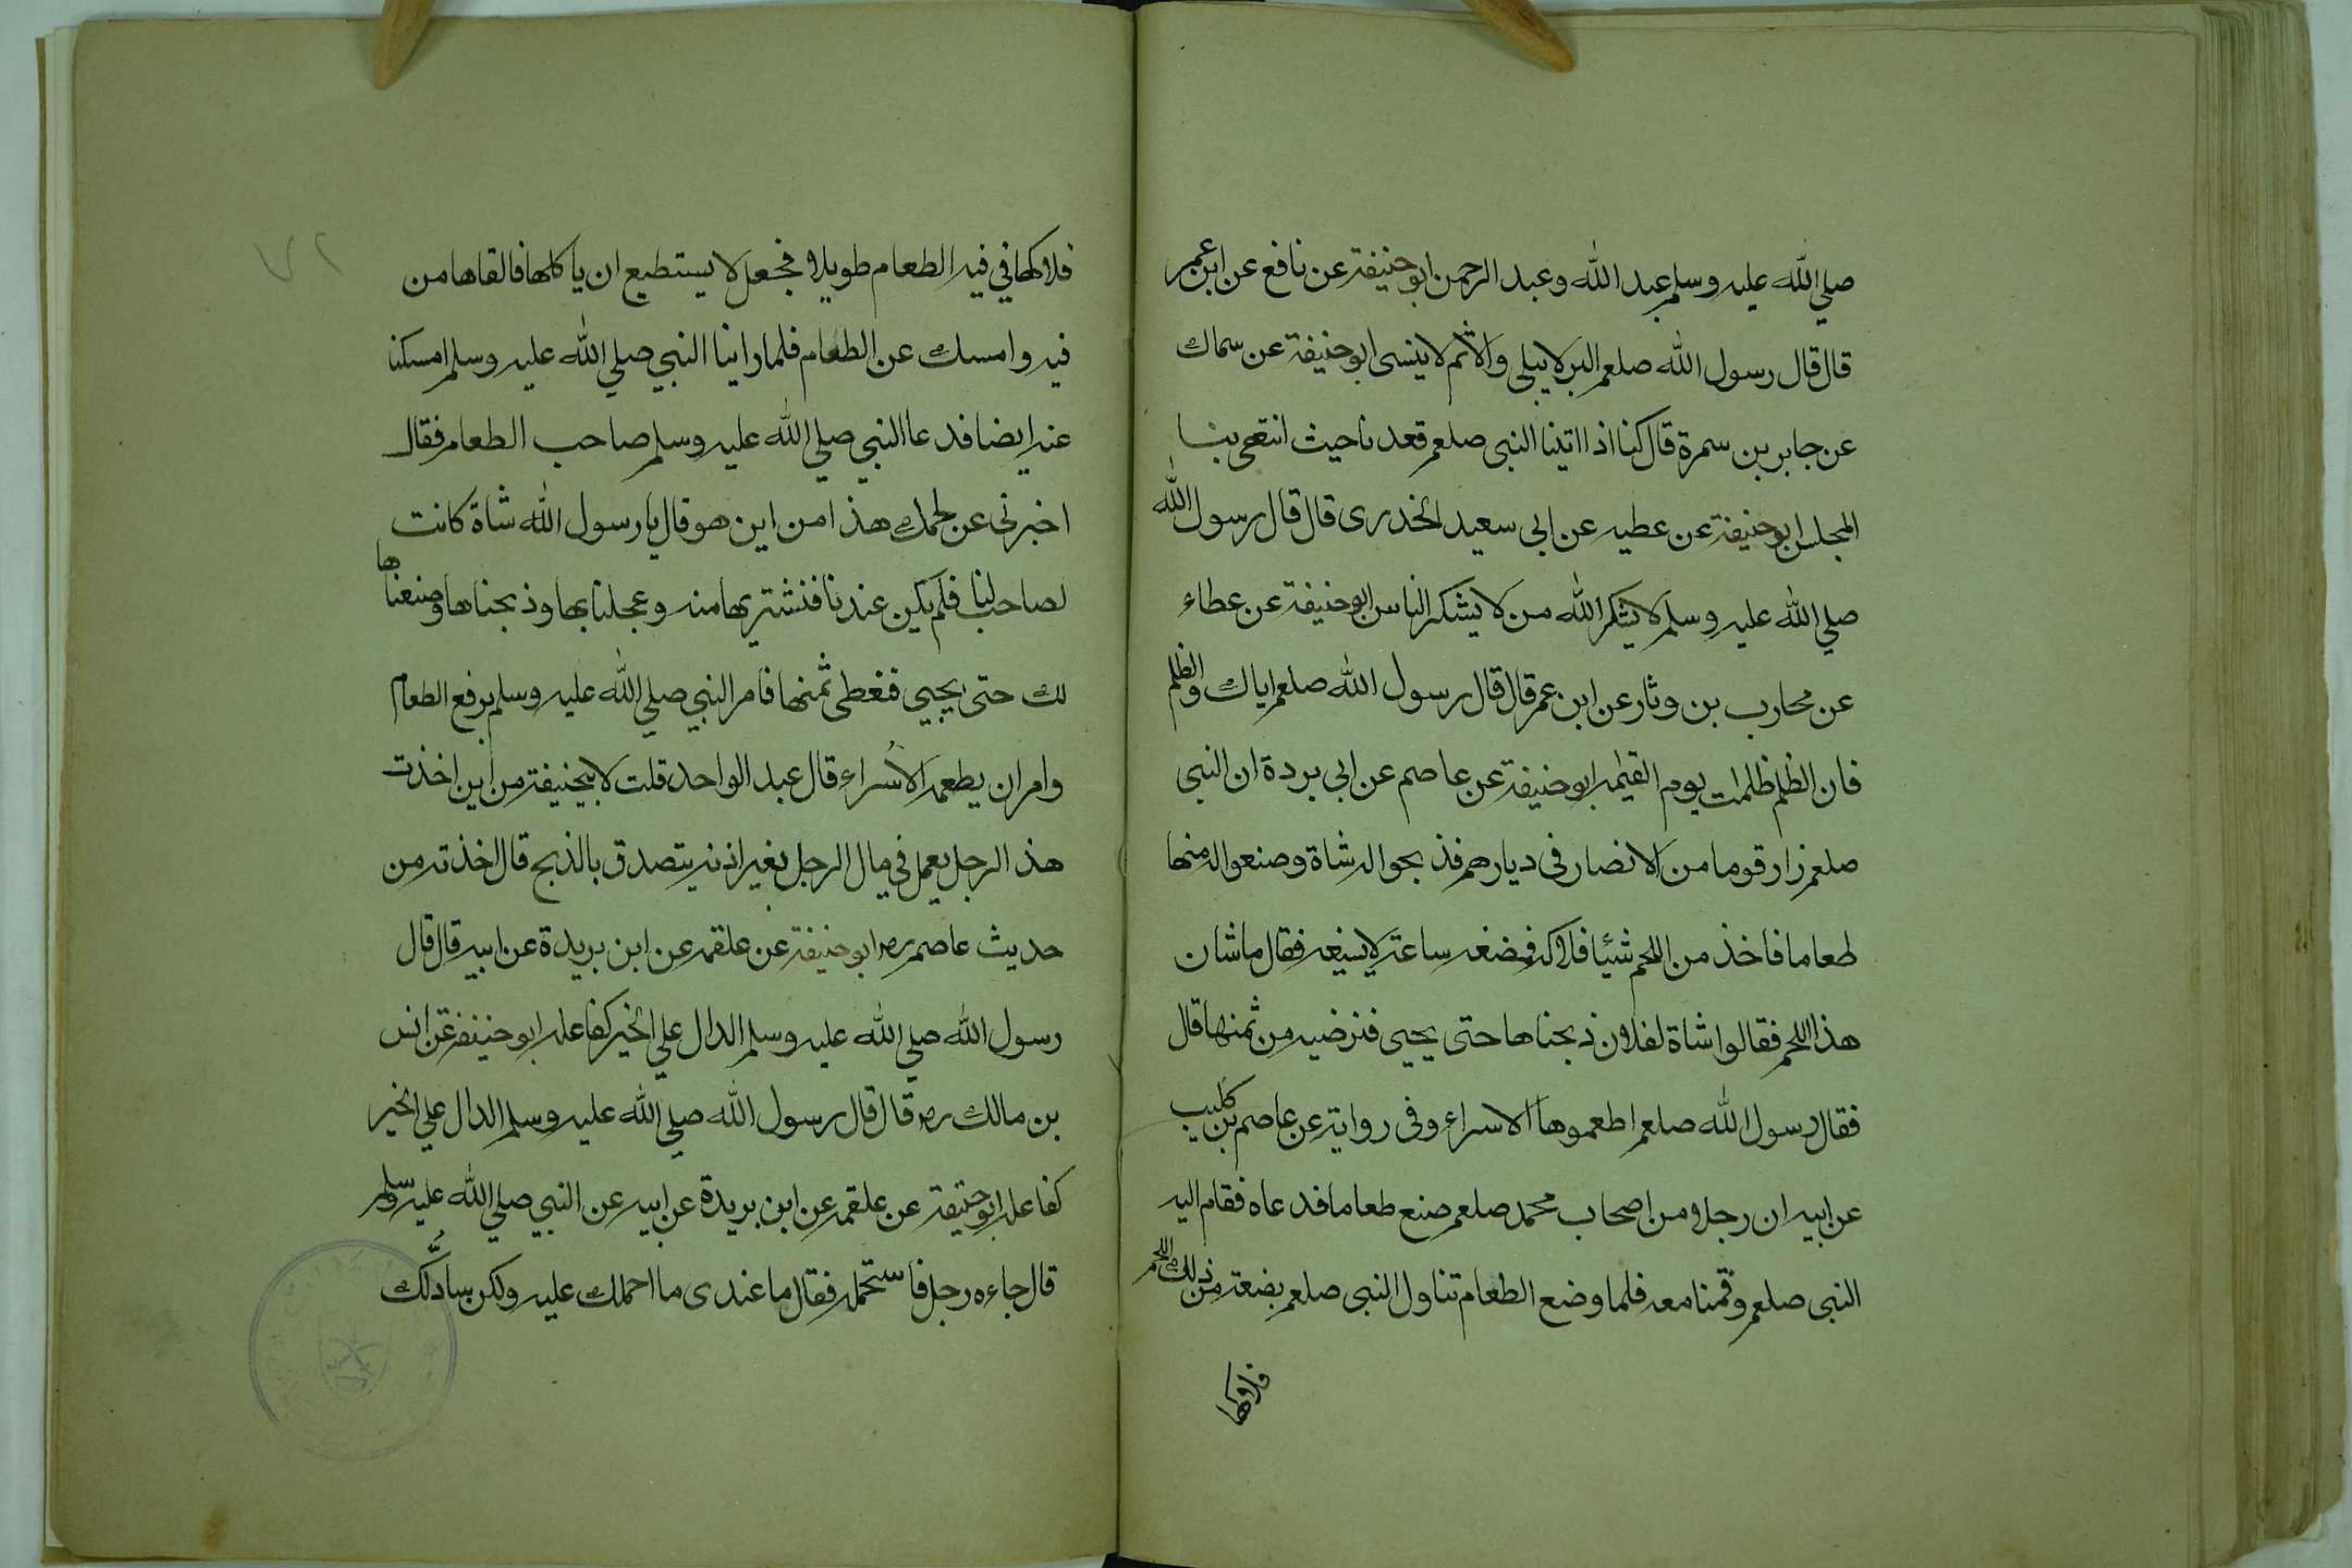 صلي الله عليه وسلم عبد الله وعبد الرحمن ابو حنيفة عن نافع عن ابن عمر
قال قال رسول الله صلعم البر لا يبلى والاثم لا ينسى ابو حنيفة عن سماك
عن جابر بن سمرة قال كنا اذا اتينا النبى صلعم قعدنا حيث انتهى بنا
المجلس ابو حنيفة عن عطيه عن ابى سعيد الخدرى قال قال رسول الله
صلي الله عليه وسلم لا يشكر الله من لا يشكر الناس ابو حنيفة عن عطاء
عن محارب بن وثار عن ابن عمر قال قال رسول الله صلعم اياك والظلم
فان الظلم ظلمات يوم القيمه ابو حنيفة عن عاصم عن ابي بردة ان النبى
صلعم زار قوما من الانصار فى ديارهم فذبحوا له شاة وصنعوا له منها
طعاما فاخذ من اللحم شيئا فلاكه فمضغه ساعة لا يسيغه فقال ما شان
هذا اللحم فقالوا شاة لفلان ذبحناها حتى يجيى فنرضيه من ثمنها قال
فقال رسول الله صلعم اطعموها الاسراء وفى رواية عن عاصم بن كليب
عن ابيه ان رجلا من اصحاب محمد صلعم صنع طعاما فدعاه فقام اليه
النبى صلعم وقمنا معه فلما وضع الطعام تناول النبى صلعم بضعة من ذلك اللحم
فلاكها
فلاكها في فيه الطعام طويلا فجعل لا يستطيع ان ياكلها فالقاها من
فيه وامسك عن الطعام فلما راينا النبي صلي الله عليه وسلم امسكنا
عنه ايضا فدعا النبي صلي الله عليه وسلم صاحب الطعام فقال
اخبرنى عن لحمك هذا من اين هو قال يا رسول الله شاة كانت
لصاحب لنا فلم يكن عندنا فنشتريها منه وعجلنا بها وذبحناها وصنعناها
لك حتى يجيي فنعطى ثمنها فامر النبي صلي الله عليه وسلم برفع الطعام
وامر ان يطعمه الأسراء قال عبد الواحد قلت لابيحنيفة من اين اخذت
هذا الرجل يعمل في مال الرجل بغير اذنه يتصدق بالذبح قال اخذته من
حديث عاصم رض ابو حنيفة عن علقمه عن ابن بريدة عن ابيه قال قال
رسول الله صلي الله عليه وسلم الدال علي الخير كفاعله ابو حنيفة عن انس
بن مالك رض قال قال رسول الله صلي الله عليه وسلم الدال علي الخير
كفاعله ابو حنيفة عن علقمه عن ابن بريدة عن ابيه عن النبي صلي الله عليه وسلم
قال جاءه رجل فاستحمله فقال ما عندى ما احملك عليه ولكن سادلّك